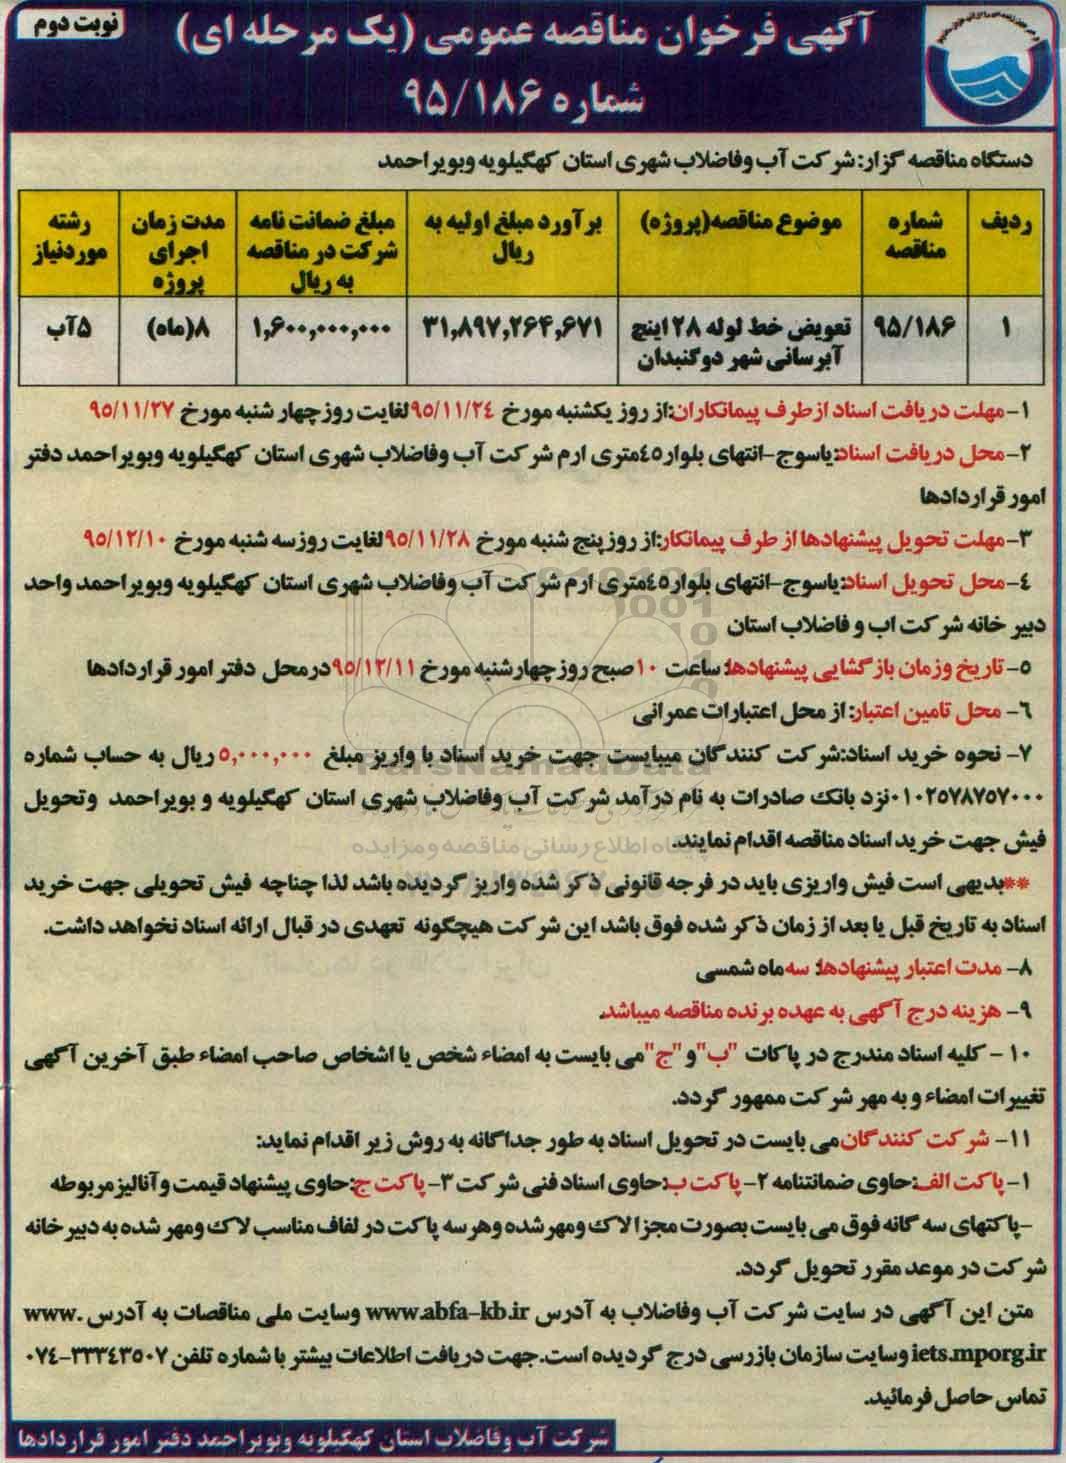 نوبت دوم
آگهی فرخوان مناقصه عمومی (یک مرحله ای)
شماره ۹۵/۱۸۶
دستگاه مناقصه گزار: شرکت آب وفاضلاب شهری استان کهگیلویه وبویراحمد
ردیف | شماره مناقصه | موضوع مناقصه(پروژه) | برآورد مبلغ اولیه به ریال | مبلغ ضمانت نامه شرکت در مناقصه به ریال | مدت زمان اجرای پروژه | رشته موردنیاز
۱ | ۹۵/۱۸۶ | تعویض خط لوله ۲۸ اینچ آبرسانی شهر دوگنبدان | ۳۱,۸۹۷,۲۶۴,۶۷۱ | ۱,۶۰۰,۰۰۰,۰۰۰ | ۸(ماه) | ۵آب
۱- مهلت دریافت اسناد ازطرف پیمانکاران:از روز یکشنبه مورخ ۹۵/۱۱/۲۴لغایت روزچهار شنبه مورخ ۹۵/۱۱/۲۷
۲-محل دریافت اسناد:یاسوج-انتهای بلوار۴۵متری ارم شرکت آب وفاضلاب شهری استان کهگیلویه وبویراحمد دفتر
امور قراردادها
۳-مهلت تحویل پیشنهادها از طرف پیمانکار:از روز پنج شنبه مورخ ۹۵/۱۱/۲۸لغایت روزسه شنبه مورخ ۹۵/۱۲/۱۰
۴-محل تحویل اسناد:یاسوج-انتهای بلوار۴۵متری ارم شرکت آب وفاضلاب شهری استان کهگیلویه وبویراحمد واحد
دبیر خانه شرکت اب و فاضلاب استان
۵- تاریخ وزمان بازگشایی پیشنهادها: ساعت ۱۰صبح روزچهارشنبه مورخ ۹۵/۱۲/۱۱درمحل دفتر امور قراردادها
۶- محل تامین اعتبار: از محل اعتبارات عمرانی
۷- نحوه خرید اسناد:شرکت کنندگان میبایست جهت خرید اسناد با واریز مبلغ ۵,۰۰۰,۰۰۰ ریال به حساب شماره
۰۱۰۲۵۷۸۷۵۷۰۰۰نزد بانک صادرات به نام درآمد شرکت آب وفاضلاب شهری استان کهگیلویه و بویراحمد وتحویل
فیش جهت خرید اسناد مناقصه اقدام نمایند.
**بدیهی است فیش واریزی باید در فرجه قانونی ذکر شده واریز گردیده باشد لذا چناچه فیش تحویلی جهت خرید
اسناد به تاریخ قبل یا بعد از زمان ذکر شده فوق باشد این شرکت هیچگونه تعهدی در قبال ارائه اسناد نخواهد داشت.
۸- مدت اعتبار پیشنهادها: سه ماه شمسی
۹- هزینه درج آگهی به عهده برنده مناقصه میباشد.
۱۰- کلیه اسناد مندرج در پاکات "ب"و"ج"می بایست به امضاء شخص یا اشخاص صاحب امضاء طبق آخرین آگهی
تغییرات امضاء و به مهر شرکت ممهور گردد.
۱۱- شرکت کنندگان می بایست در تحویل اسناد به طور جداگانه به روش زیر اقدام نماید:
۱- پاکت الف:حاوی ضمانتنامه ۲- پاکت ب:حاوی اسناد فنی شرکت ۳- پاکت ج:حاوی پیشنهاد قیمت وآنالیزمربوطه
-پاکتهای سه گانه فوق می بایست بصورت مجزا لاک ومهرشده وهرسه پاکت در لفاف مناسب لاک ومهر شده به دبیرخانه
شرکت در موعد مقرر تحویل گردد.
متن این آگهی در سایت شرکت آب وفاضلاب به آدرس www.abfa-kb.ir وسایت ملی مناقصات به آدرس www.
iets.mporg.ir وسایت سازمان بازرسی درج گردیده است.جهت دریافت اطلاعات بیشتر با شماره تلفن ۳۳۳۴۳۵۰۷-۰۷۴
تماس حاصل فرمائید.
شرکت آب وفاضلاب استان کهگیلویه وبویراحمد دفتر امور قراردادها
ParsNamadData
پایگاه اطلاع رسانی مناقصه و مزایده